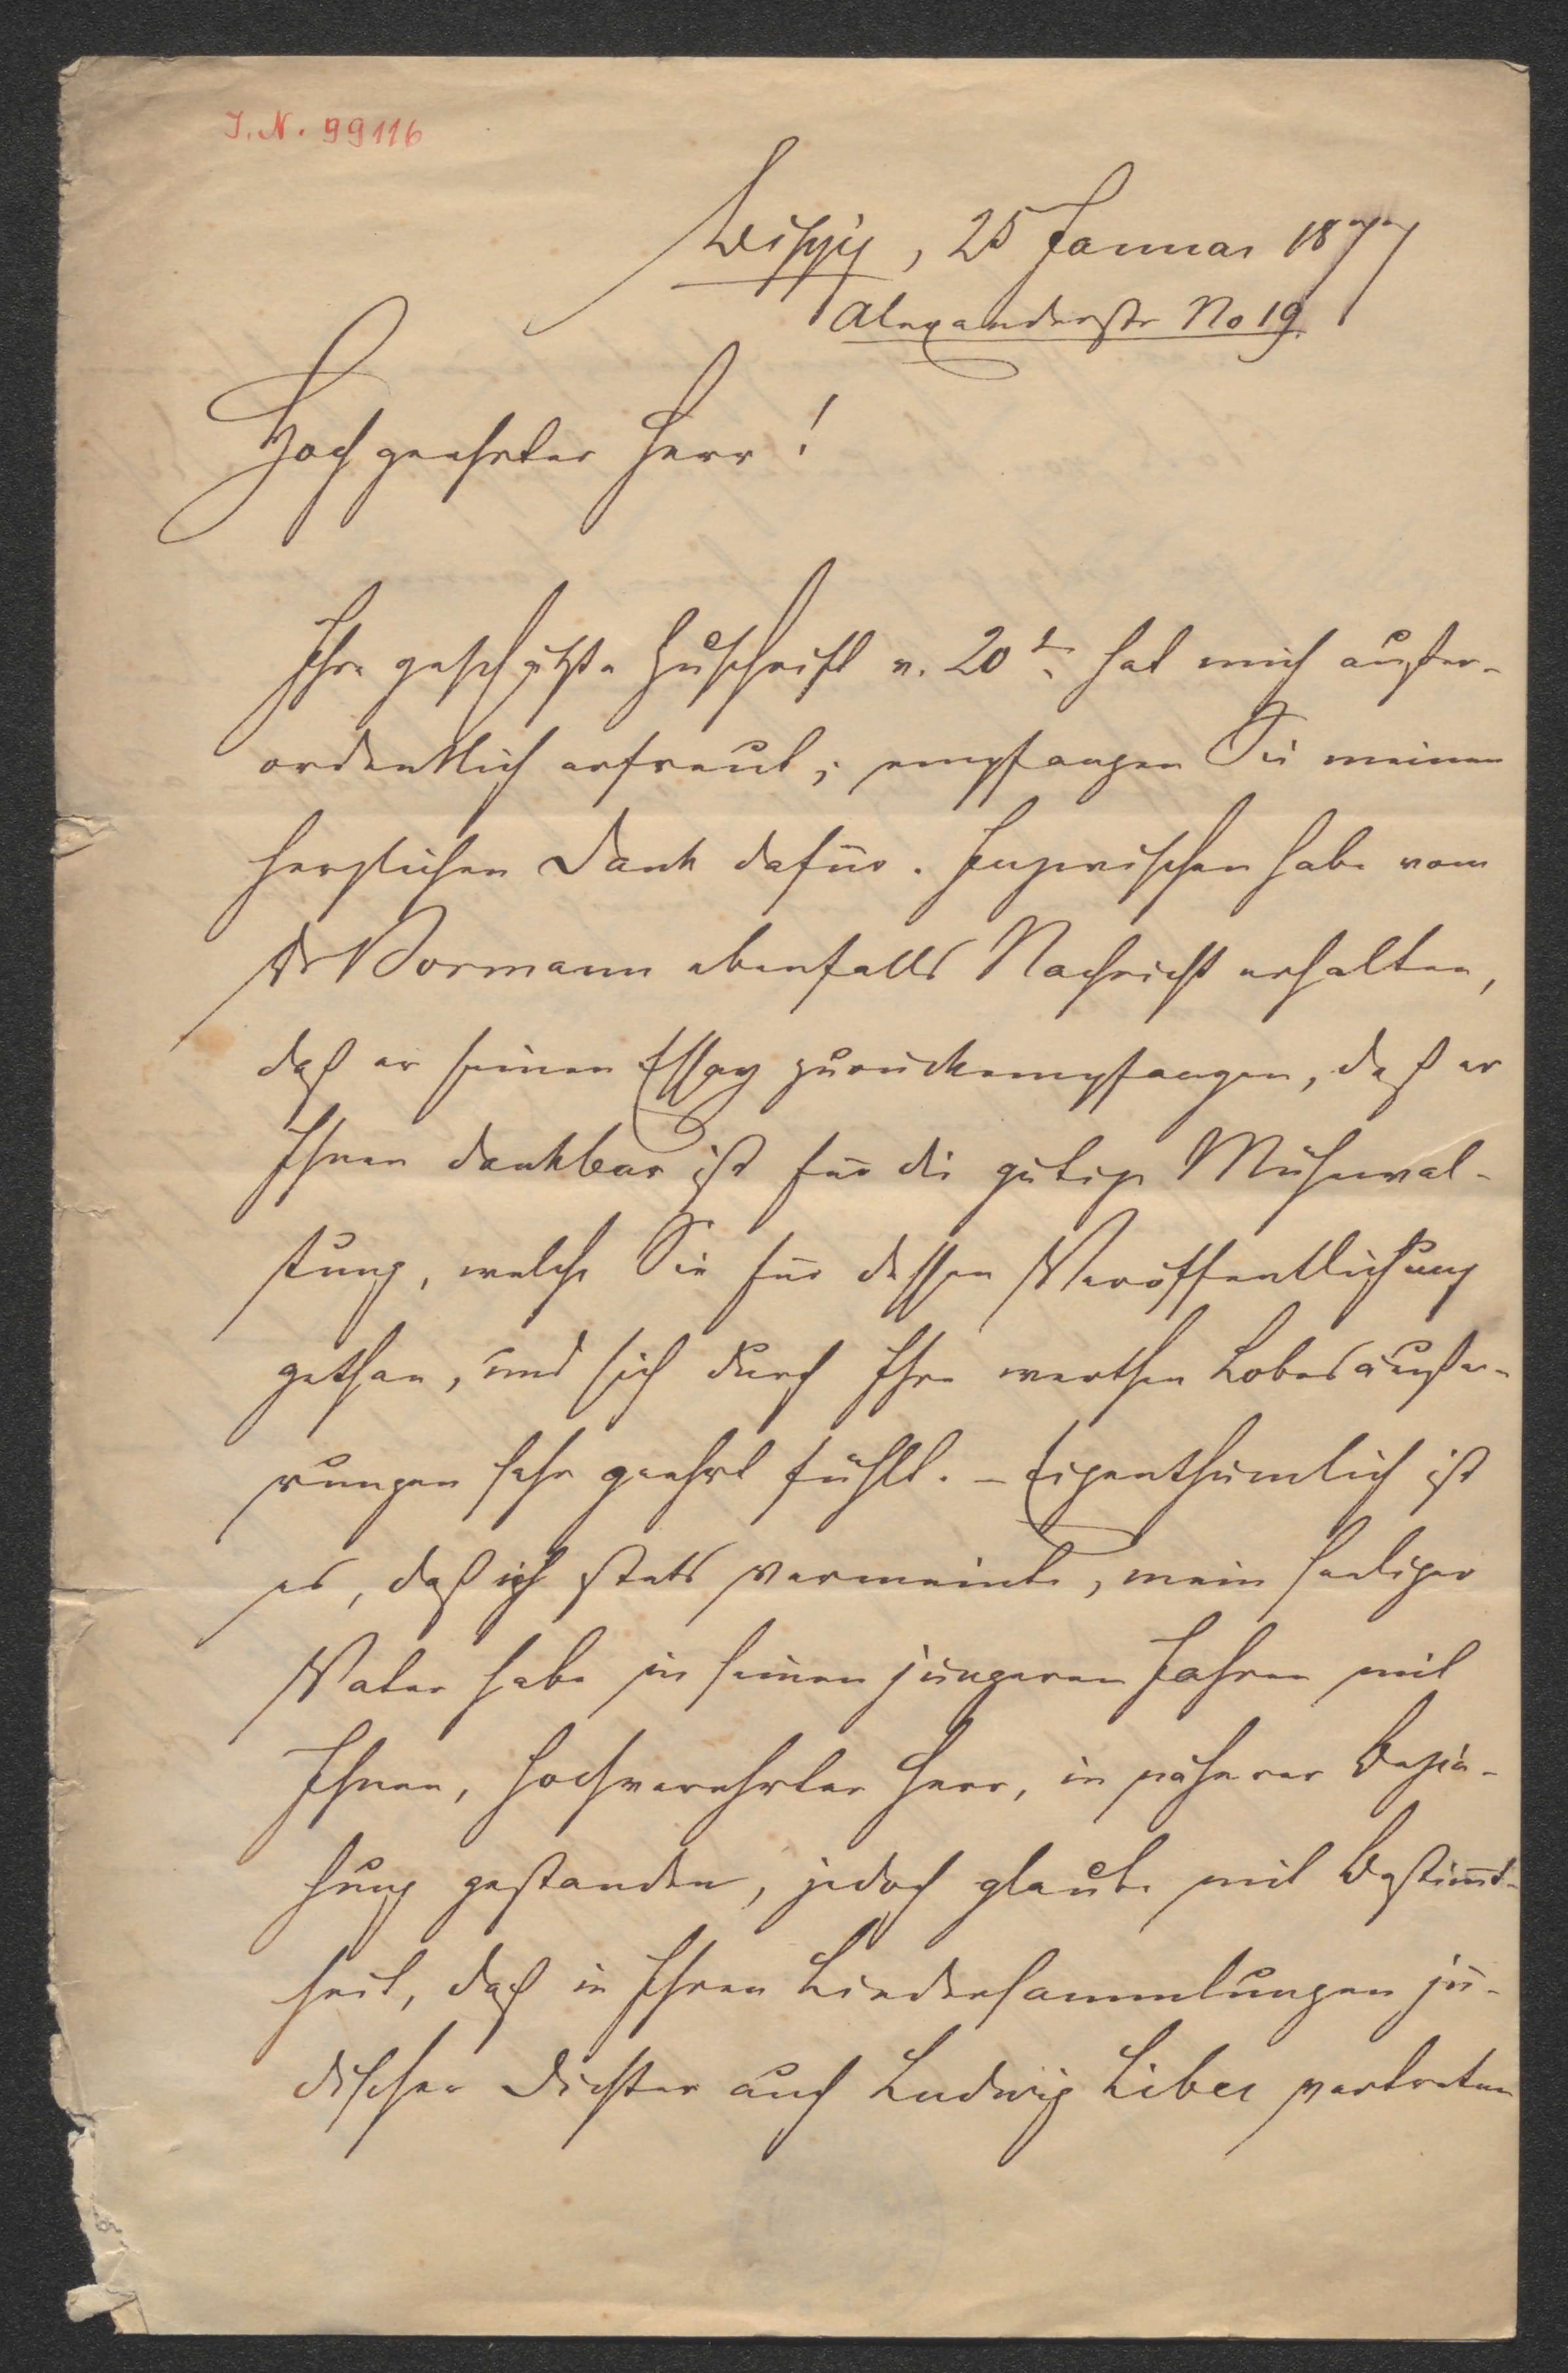 J. N. 99116
Leipzig, 25 Januar 1877
Alexanderstr No 19.
Hochgeehrter Herr!
Ihre geschätzte Zuschrift v. 20t. hat mich außer-
ordentlich erfreut; empfangen Sie meinen
herzlichen Dank dafür. Inzwischen habe vom
Dr Bormann ebenfalls Nachricht erhalten,
daß er seinen Essay zurückempfangen, daß er
Ihnen dankbar ist für die gütige Mühewal-
tung, welche Sie für dessen Veröffentlichung
gethan, und sich durch Ihre werthen Lobesäuße-
rungen sehr geehrt fühlt. – Eigenthümlich ist
es, daß ich stets vermeinte, mein seeliger
Vater habe in seinen jüngeren Jahren mit
Ihnen, hochverehrter Herr, in näherer Bezie-
hung gestanden, jedoch glaube mit Bestimt-
heit, daß in Ihren Liedersammlungen jü-
discher Dichter auch Ludwig Liber vertreten